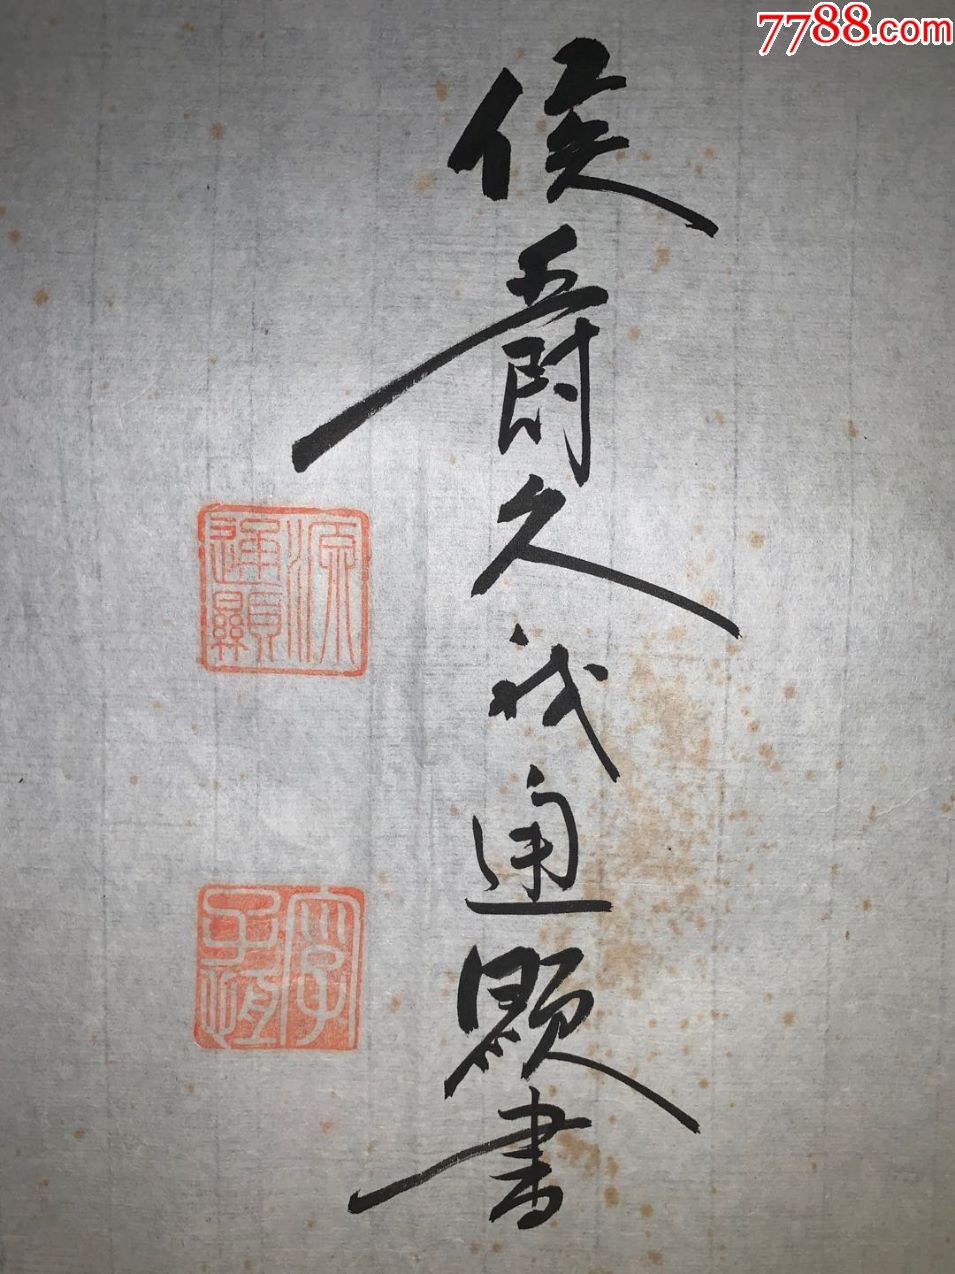 7788.com
侯爵久我通顕書
源通顯
字子恒